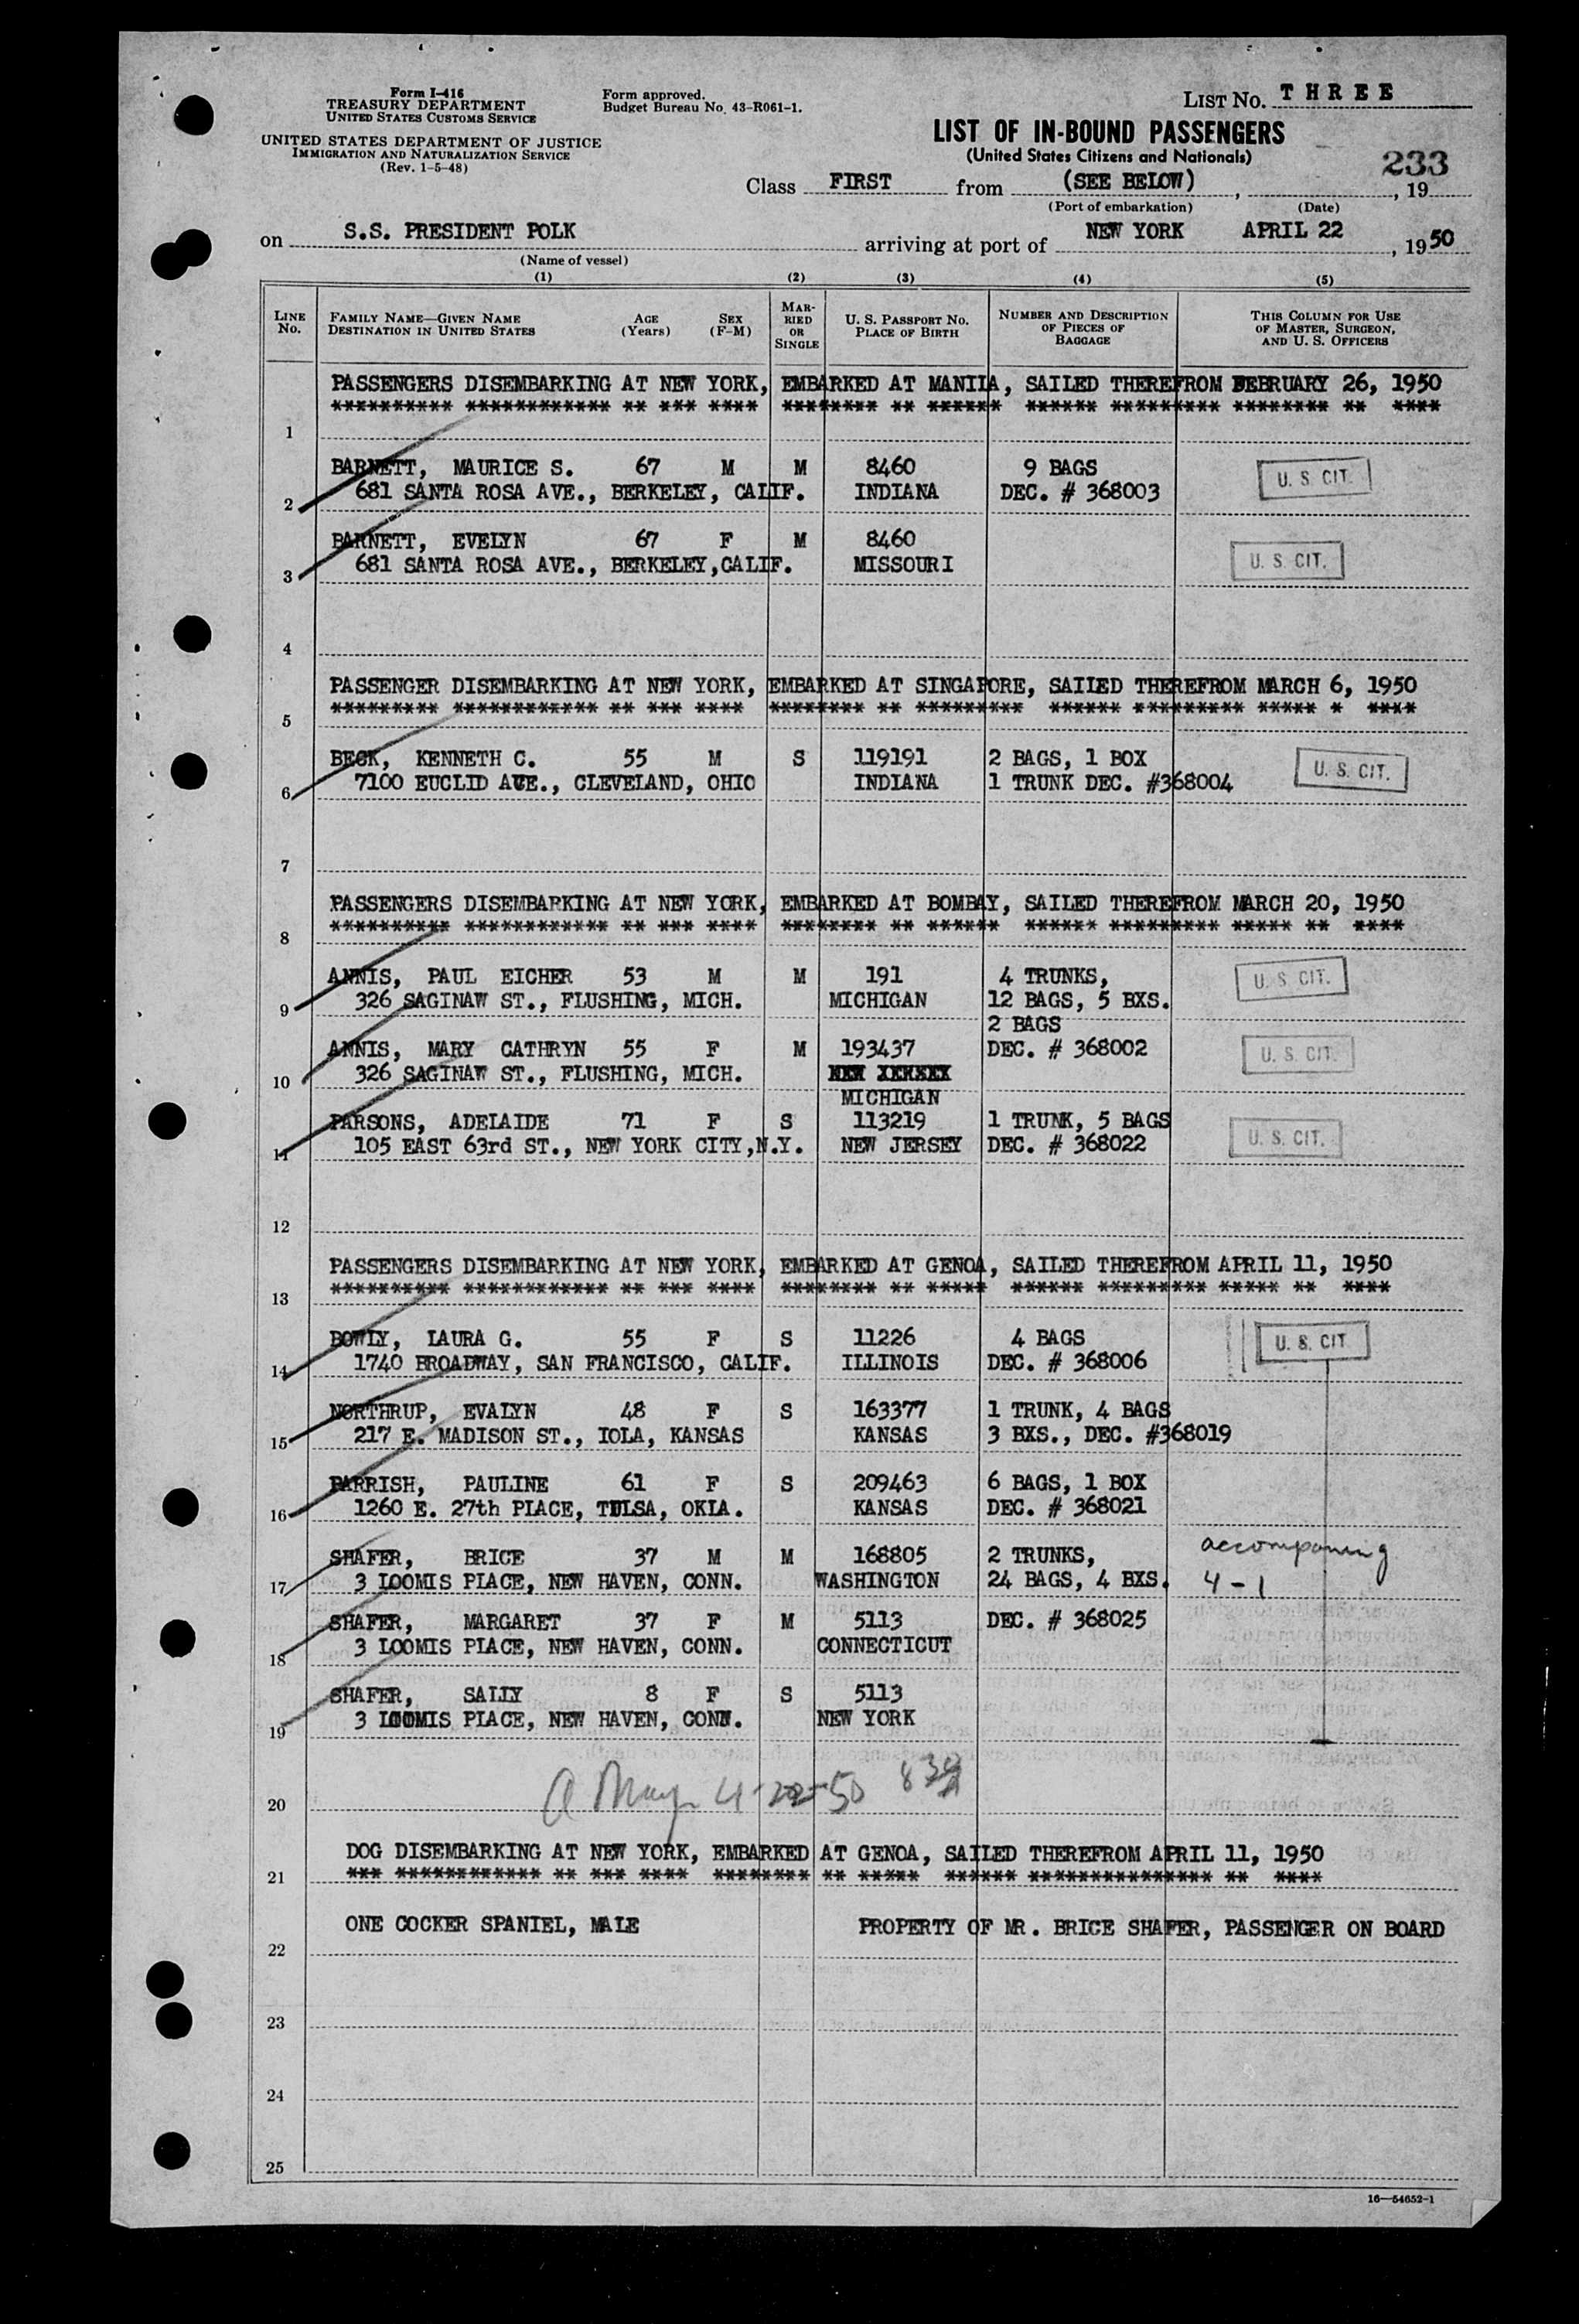 Form I-416
TREASURY DEPARTMENT
UNITED STATES CUSTOMS SERVICE
UNITED STATES DEPARTMENT OF JUSTICE
IMMIGRATION AND NATURALIZATION SERVICE
(Rev. 1-5-48)
Form approved.
Budget Bureau No. 43-R061-1.
LIST NO. THREE
LIST OF IN-BOUND PASSENGERS
(United States Citizens and Nationals)
233
Class FIRST from (SEE BELOW), , 19
(Port of embarkation) (Date)
on S.S. PRESIDENT POLK arriving at port of NEW YORK APRIL 22, 1950
(Name of vessel)
(1) (2) (3) (4) (5)
LINE No. FAMILY NAME—GIVEN NAME DESTINATION IN UNITED STATES AGE (Years) SEX (F-M) MARRIED OR SINGLE U. S. PASSPORT NO. PLACE OF BIRTH NUMBER AND DESCRIPTION OF PIECES OF BAGGAGE THIS COLUMN FOR USE OF MASTER, SURGEON, AND U. S. OFFICERS
PASSENGERS DISEMBARKING AT NEW YORK, EMBARKED AT MANILA, SAILED THEREFROM FEBRUARY 26, 1950
********** ************ ** *** **** ******** ** ****** ****** ********* ******** ** ****
1
BARNETT, MAURICE S. 67 M M 8460 9 BAGS U. S. CIT.
2 681 SANTA ROSA AVE., BERKELEY, CALIF. INDIANA DEC. # 368003
BARNETT, EVELYN 67 F M 8460
3 681 SANTA ROSA AVE., BERKELEY,CALIF. MISSOURI U. S. CIT.
4
PASSENGER DISEMBARKING AT NEW YORK, EMBARKED AT SINGAPORE, SAILED THEREFROM MARCH 6, 1950
********* ************ ** *** **** ******** ** ********* ****** ********* ***** * ****
5
BECK, KENNETH C. 55 M S 119191 2 BAGS, 1 BOX U. S. CIT.
6 7100 EUCLID AVE., CLEVELAND, OHIO INDIANA 1 TRUNK DEC. #368004
7
PASSENGERS DISEMBARKING AT NEW YORK, EMBARKED AT BOMBAY, SAILED THEREFROM MARCH 20, 1950
********** ************ ** *** **** ******** ** ****** ****** ********* ***** ** ****
8
ANNIS, PAUL EICHER 53 M M 191 4 TRUNKS, U. S. CIT.
9 326 SAGINAW ST., FLUSHING, MICH. MICHIGAN 12 BAGS, 5 BXS.
2 BAGS
ANNIS, MARY CATHRYN 55 F M 193437 DEC. # 368002 U. S. CIT.
10 326 SAGINAW ST., FLUSHING, MICH. NEW JERSEY
MICHIGAN
PARSONS, ADELAIDE 71 F S 113219 1 TRUNK, 5 BAGS U. S. CIT.
11 105 EAST 63rd ST., NEW YORK CITY,N.Y. NEW JERSEY DEC. # 368022
12
PASSENGERS DISEMBARKING AT NEW YORK, EMBARKED AT GENOA, SAILED THEREFROM APRIL 11, 1950
********** ************ ** *** **** ******** ** ***** ****** ********* ***** ** ****
13
BOWLY, LAURA G. 55 F S 11226 4 BAGS U. S. CIT
14 1740 BROADWAY, SAN FRANCISCO, CALIF. ILLINOIS DEC. # 368006
NORTHRUP, EVALYN 48 F S 163377 1 TRUNK, 4 BAGS
15 217 E. MADISON ST., IOLA, KANSAS KANSAS 3 BXS., DEC. #368019
PARRISH, PAULINE 61 F S 209463 6 BAGS, 1 BOX
16 1260 E. 27th PLACE, TULSA, OKLA. KANSAS DEC. # 368021
SHAFER, BRICE 37 M M 168805 2 TRUNKS, accompaning
17 3 LOOMIS PLACE, NEW HAVEN, CONN. WASHINGTON 24 BAGS, 4 BXS. 4-1
SHAFER, MARGARET 37 F M 5113 DEC. # 368025
18 3 LOOMIS PLACE, NEW HAVEN, CONN. CONNECTICUT
SHAFER, SALLY 8 F S 5113
19 3 LOOMIS PLACE, NEW HAVEN, CONN. NEW YORK
4-22-50
20
DOG DISEMBARKING AT NEW YORK, EMBARKED AT GENOA, SAILED THEREFROM APRIL 11, 1950
*** ************ ** *** **** ******** ** ***** ****** *************** ** ****
21
ONE COCKER SPANIEL, MALE PROPERTY OF MR. BRICE SHAFER, PASSENGER ON BOARD
22
23
24
25
16—54652-1